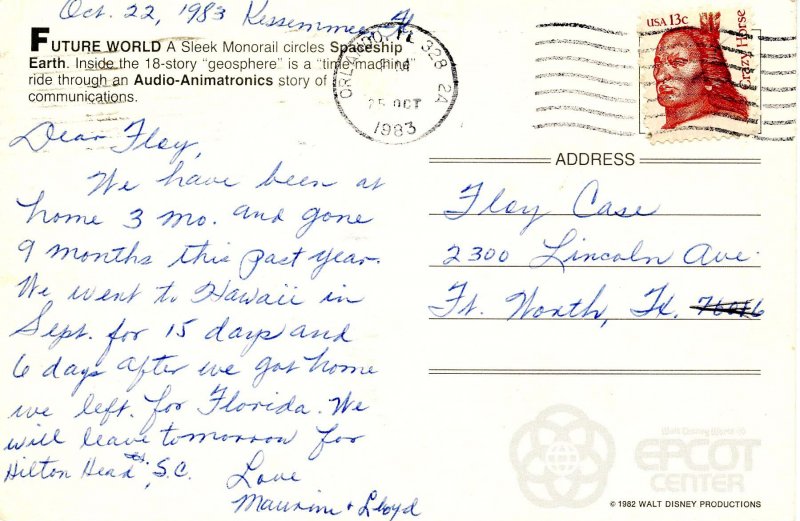 Oct. 22, 1983 Kessemmee, Fl
FUTURE WORLD A Sleek Monorail circles Spaceship
Earth. Inside the 18-story "geosphere" is a "time-machine"
ride through an Audio-Animatronics story of
communications.
ORLANDO, FL 328 2A
PM
25 OCT
1983
USA 13c
Crazy Horse
Dear Floy,
We have been at
home 3 mo. and gone
9 months this past year.
We went to Hawaii in
Sept. for 15 days and
6 days after we got home
we left for Florida. We
will leave tomorrow for
Hilton Head, S.C.
Love
Maurine & Lloyd
ADDRESS
Floy Case
2300 Lincoln Ave.
Ft. Worth, Tx.
Walt Disney World
EPCOT
CENTER
© 1982 WALT DISNEY PRODUCTIONS